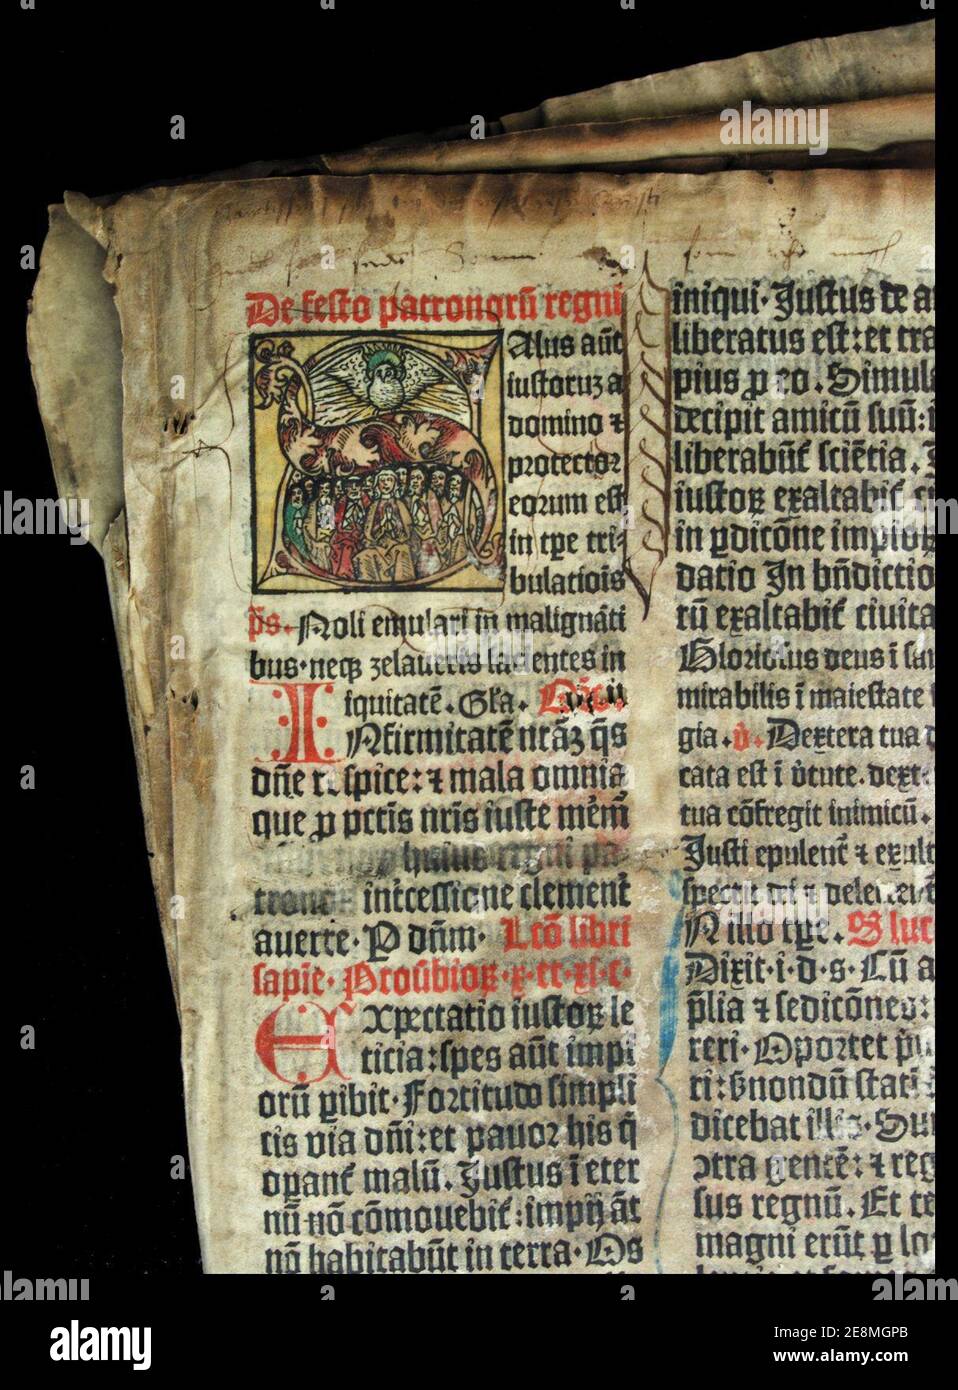 De festo patronorū regni
Alus aūt
iustoruʒ a
domino ⁊
protector
eorum est
in tp̄e tri-
bulatiōis
p̄s. Noli emulari in malignāti
bus·neqꝫ zelaueris facientes in
iquitatē. Gl̓a.
Nfirmitatē nr̄aʒ q̄s
dn̄e respice: ⁊ mala omnia
que ꝓ pctīs nr̄is iuste mēm̄
huius regni pa-
tronoꝝ int̄cessione clement̄
auerte. P dn̄m. Lcō libri
sapīe. Prouerbioꝝ. x. et. xi. c.
Expectatio iustoꝝ le
ticia: spes aūt impi
orū ꝑibit. Fortitudo simpli
cis via dn̄i: et pauor his q̄
oꝑant̄ malū. Justus ī eter
nū nō cōmouebit̄: impij āt
nō habitabūt in terra. Os
iniqui. Justus de a
liberatus est: et tra
pius ꝓ eo. Simula
decipit amicū suū: i
liberabūt̄ sciētia.
iustoꝝ exaltabit̄ ci
in ꝑdicōne impioꝝ
datio In bn̄dictio
rū exaltabit̄ ciuita
Gloriosus deus ī sa
mirabilis ī maiestate
gia. v̄. Dextera tua
cata est ī v̓tute. dext-
tua cōfregit inimicū.
Justi epulent̄ ⁊ exult
spectu dei ⁊ delectent̄
N illo tp̄e. S luc
Dixit. i. d. s. Cū a
p̄lia ⁊ sedicōnes:
reri. Oportet
ri: s̄ nondū stati
dicebat illis. Sur
ↄtra gentē: ⁊ reg
sus regnū. Et te
magni erūt ꝑ lo
alamy
Image ID: 2E8MGPB
www.alamy.com